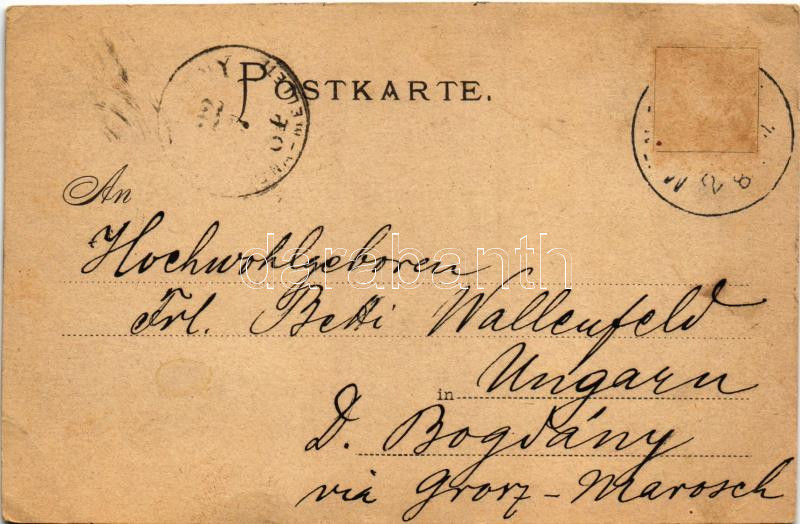 POSTKARTE.
An
Hochwohlgeboren
Frl. Betti Wallenfeld
in Ungarn
D. Bogdány
via Grosz-Marosch
darabanth